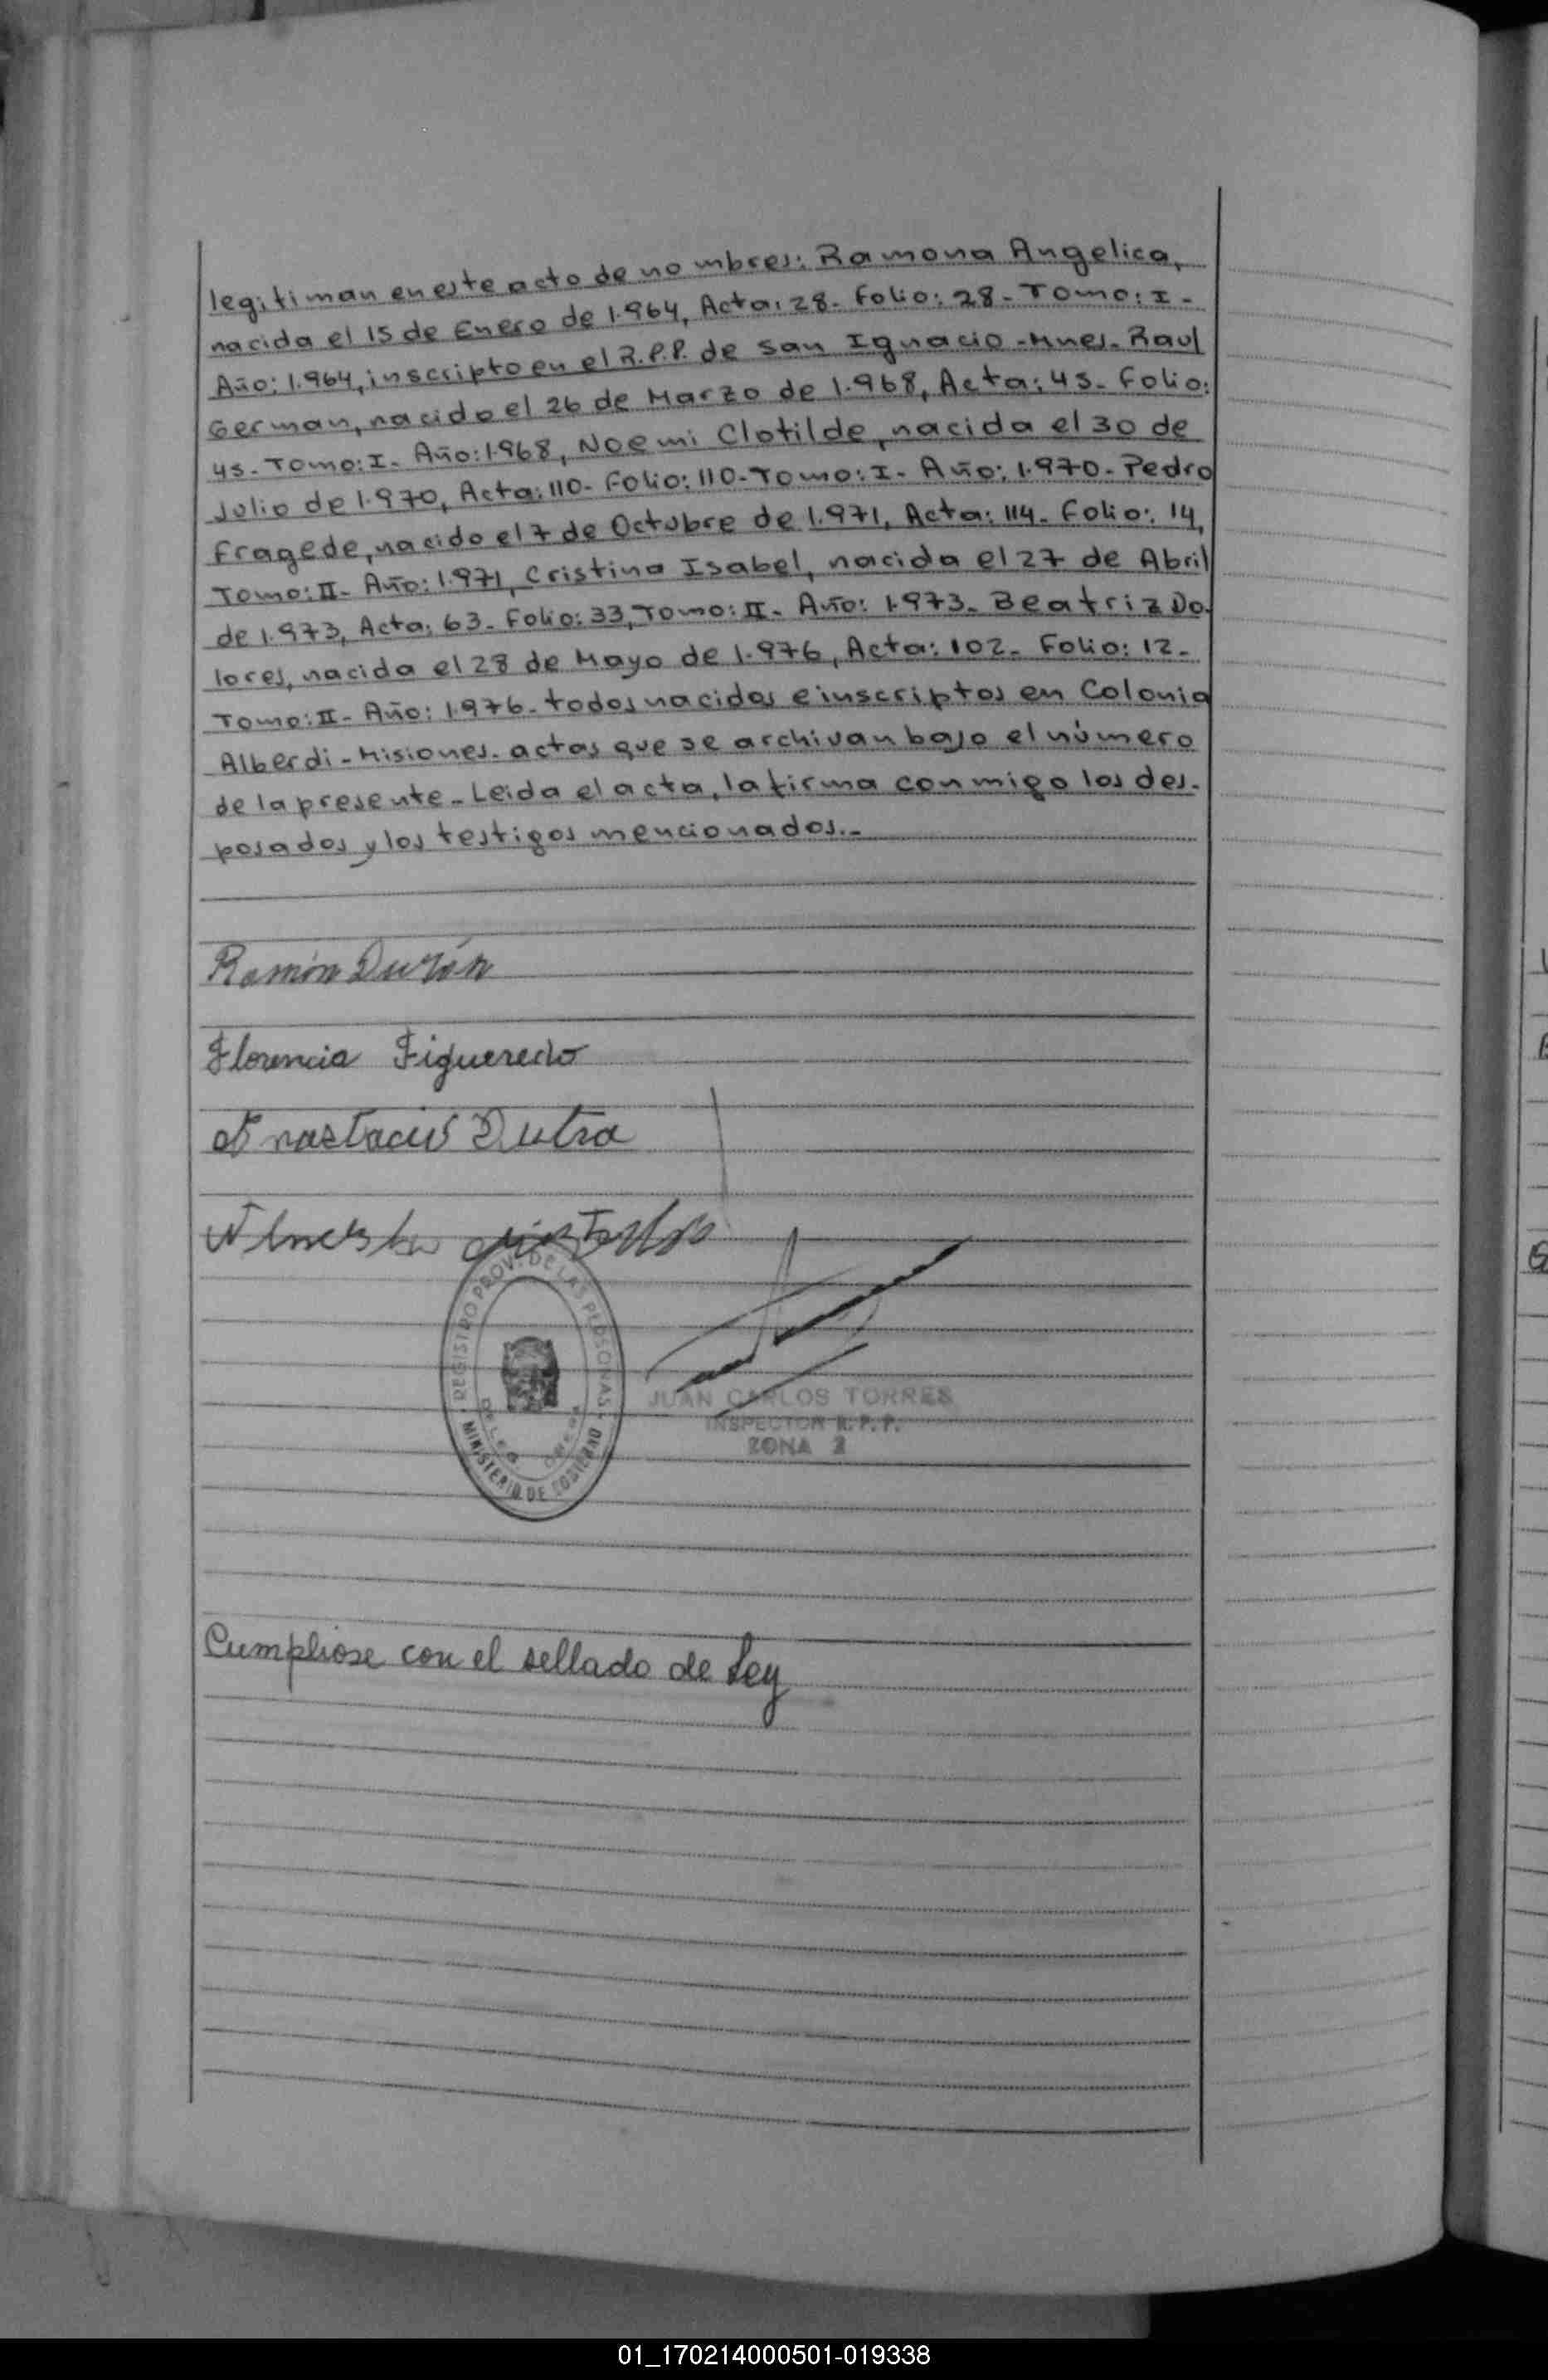 legitiman en este acto de nombres: Ramona Angelica,
nacida el 15 de Enero de 1.964, Acta: 28- Folio: 28- Tomo: I-
Año: 1.964, inscripto en el R.P.P. de San Ignacio-Mnes- Raul
German, nacido el 26 de Marzo de 1.968, Acta: 45- Folio:
45- Tomo: I- Año: 1.968, Noemi Clotilde, nacida el 30 de
Julio de 1.970, Acta: 110- Folio: 110- Tomo: I- Año: 1.970- Pedro
Fragede, nacido el 7 de Octubre de 1.971, Acta: 114- Folio: 14,
Tomo: II- Año: 1.971, Cristina Isabel, nacida el 27 de Abril
de 1.973, Acta: 63- Folio: 33, Tomo: II- Año: 1.973- Beatriz Do-
lores, nacida el 28 de Mayo de 1.976, Acta: 102- Folio: 12-
Tomo: II- Año: 1.976- todos nacidos e inscriptos en Colonia
Alberdi-Misiones- actas que se archivan bajo el número
de la presente- Leida el acta, la firma conmigo los des-
posados y los testigos mencionados.-
Ramón Durán
Florencia Figueredo
Anastacio Dutra
REGISTRO PROV. DE LAS PERSONAS
MINISTERIO DE GOBIERNO
JUAN CARLOS TORRES
INSPECTOR R.P.P.
ZONA 2
Cumpliose con el sellado de Ley
01_170214000501-019338